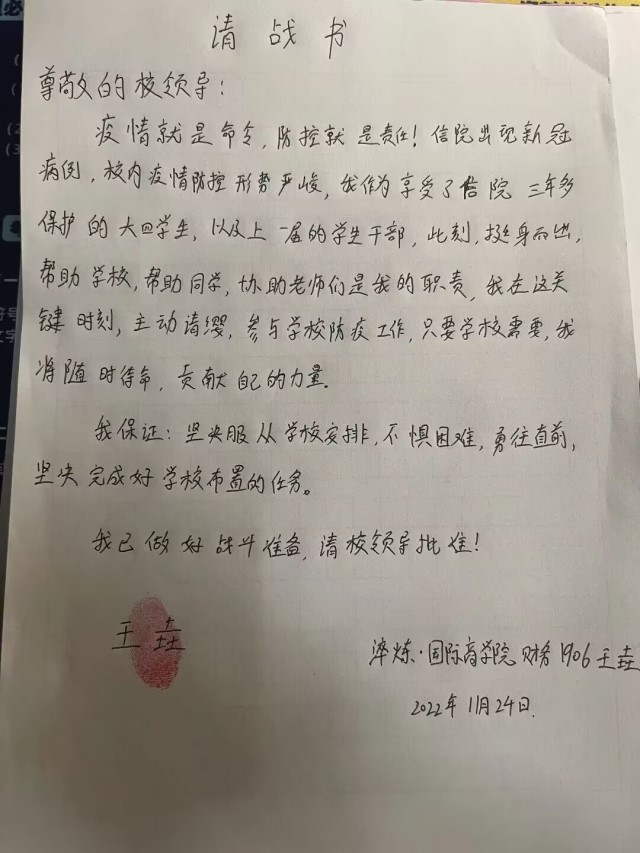 请战书
尊敬的校领导：
疫情就是命令，防控就是责任！信院出现新冠
病例，校内疫情防控形势严峻，我作为享受了信院三年多
保护的大四学生，以及上一届的学生干部，此刻，挺身而出，
帮助学校，帮助同学，协助老师们是我的职责，我在这关
键时刻，主动请缨，参与学校防疫工作，只要学校需要，我
将随时待命，贡献自己的力量。
我保证：坚决服从学校安排，不惧困难，勇往直前，
坚决完成好学校布置的任务。
我已做好战斗准备，请校领导批准！
王垚
淬炼·国际商学院 财务1906 王垚
2022年11月24日.